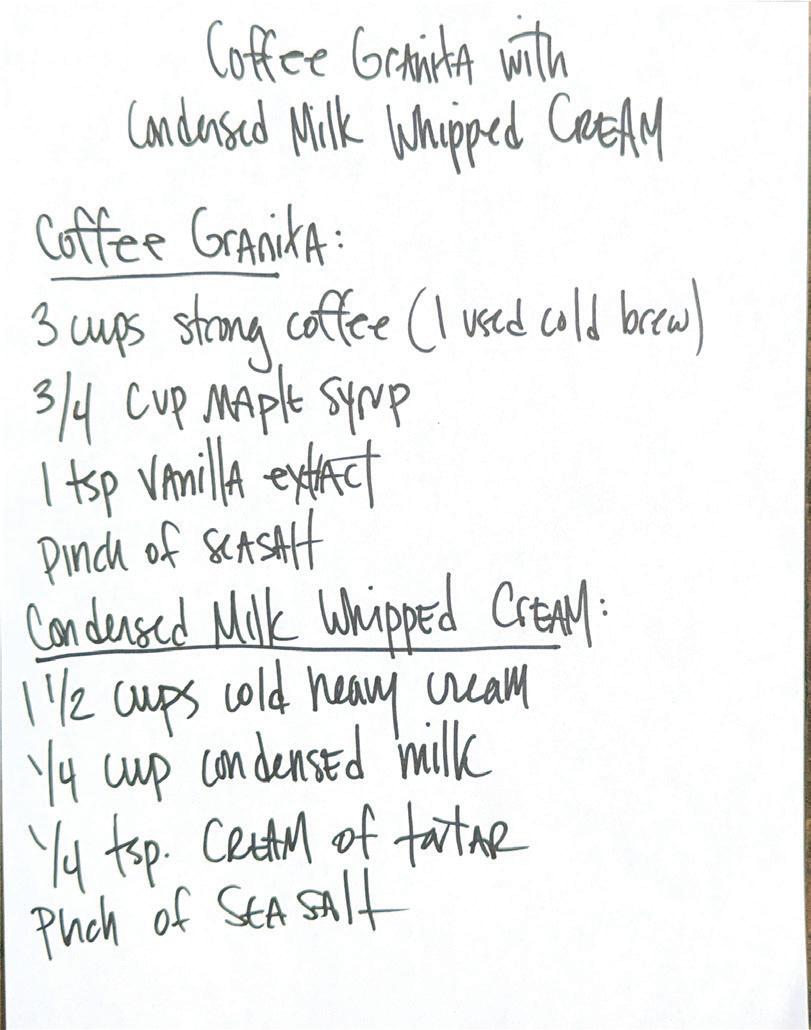 Coffee Granita with
Condensed Milk Whipped CREAM
Coffee Granita:
3 cups strong coffee (I used cold brew)
3/4 CUP MAple SYRUP
1 tsp VANillA extRACT
Pinch of SEASAlt
Condensed Milk Whipped CREAM:
1 1/2 cups cold heavy cream
1/4 cup condensed milk
1/4 tsp. CREAM of tartar
Pinch of SEA SAlt